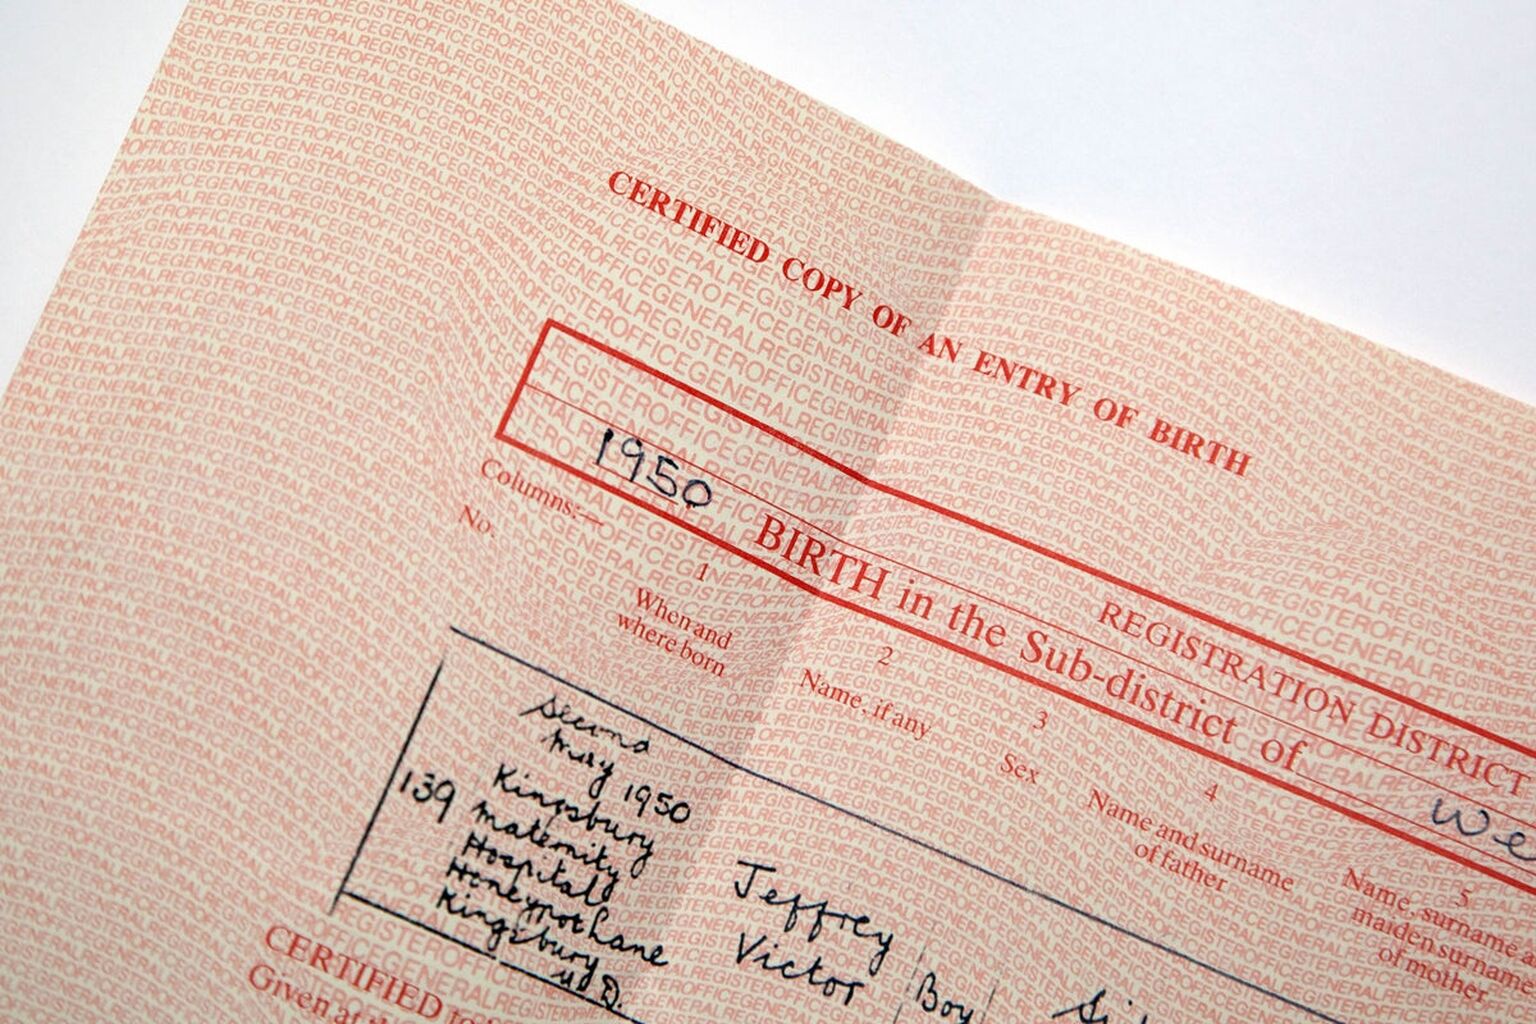 CERTIFIED COPY OF AN ENTRY OF BIRTH
REGISTRATION DISTRICT
1950 BIRTH in the Sub-district of We
Columns:—
No.
1
When and
where born
2
Name, if any
3
Sex
4
Name and surname
of father
5
Name, surname
maiden surname
of mother
139
Second
May 1950
Kingsbury
Maternity
Hospital
Honeypot Lane
Kingsbury
U.D.
Jeffrey
Victor
Boy
Si
CERTIFIED
Given at
GENERALREGISTEROFFICE